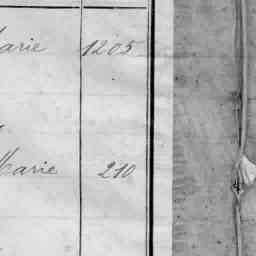 Marie 1205
Marie 210